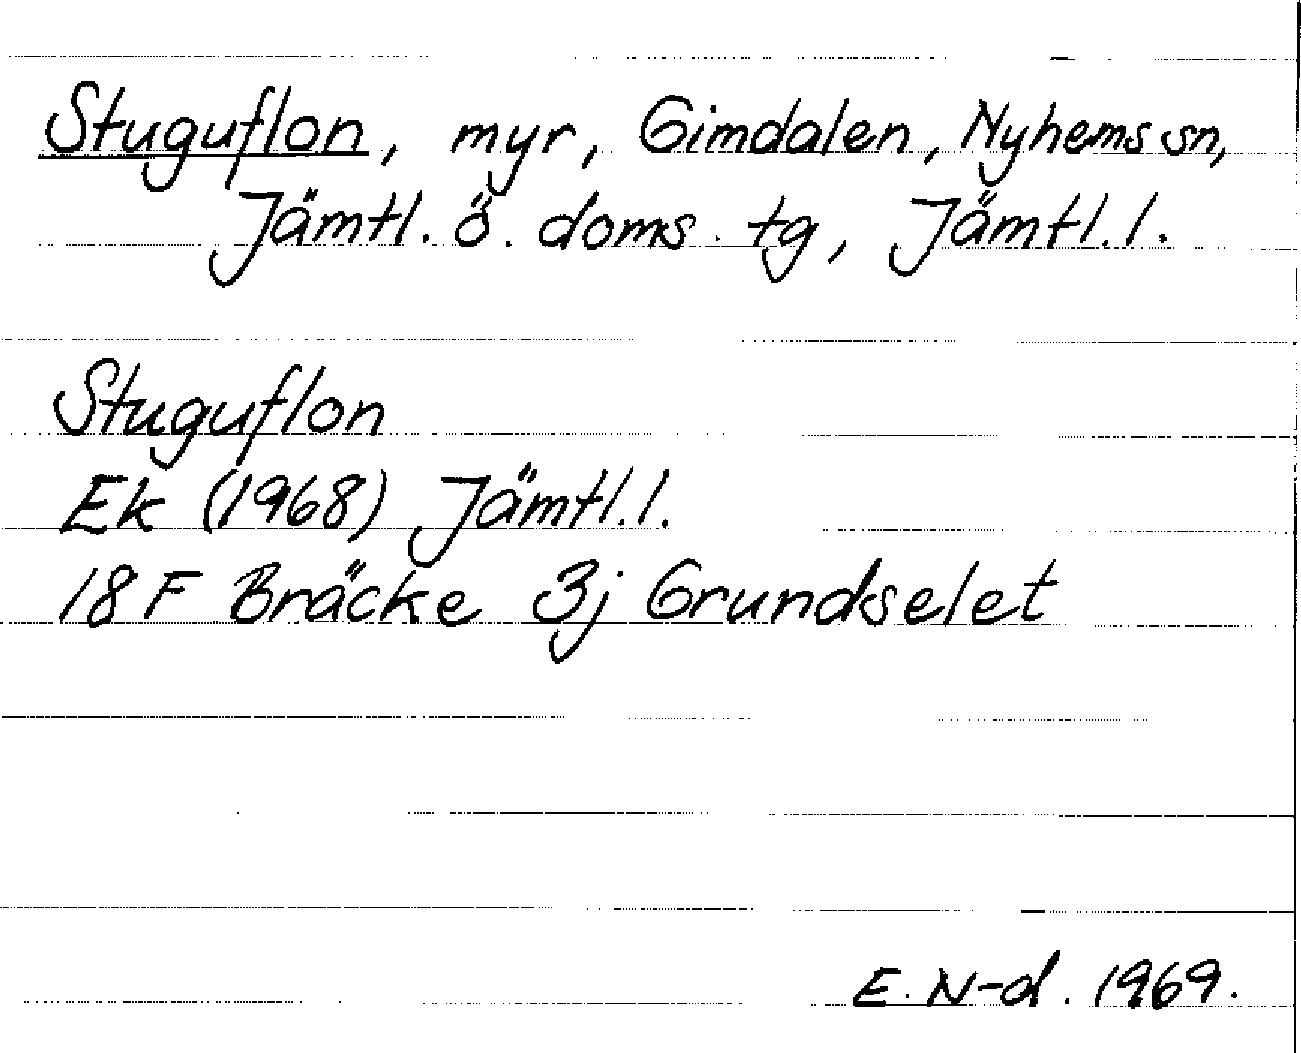 Stuguflon, myr, Gimdalen, Nyhems sn,
Jämtl. ö. doms. tg, Jämtl. l.
Stuguflon
Ek (1968) Jämtl. l.
18 F Bräcke 3j Grundselet
E. N-d. 1969.